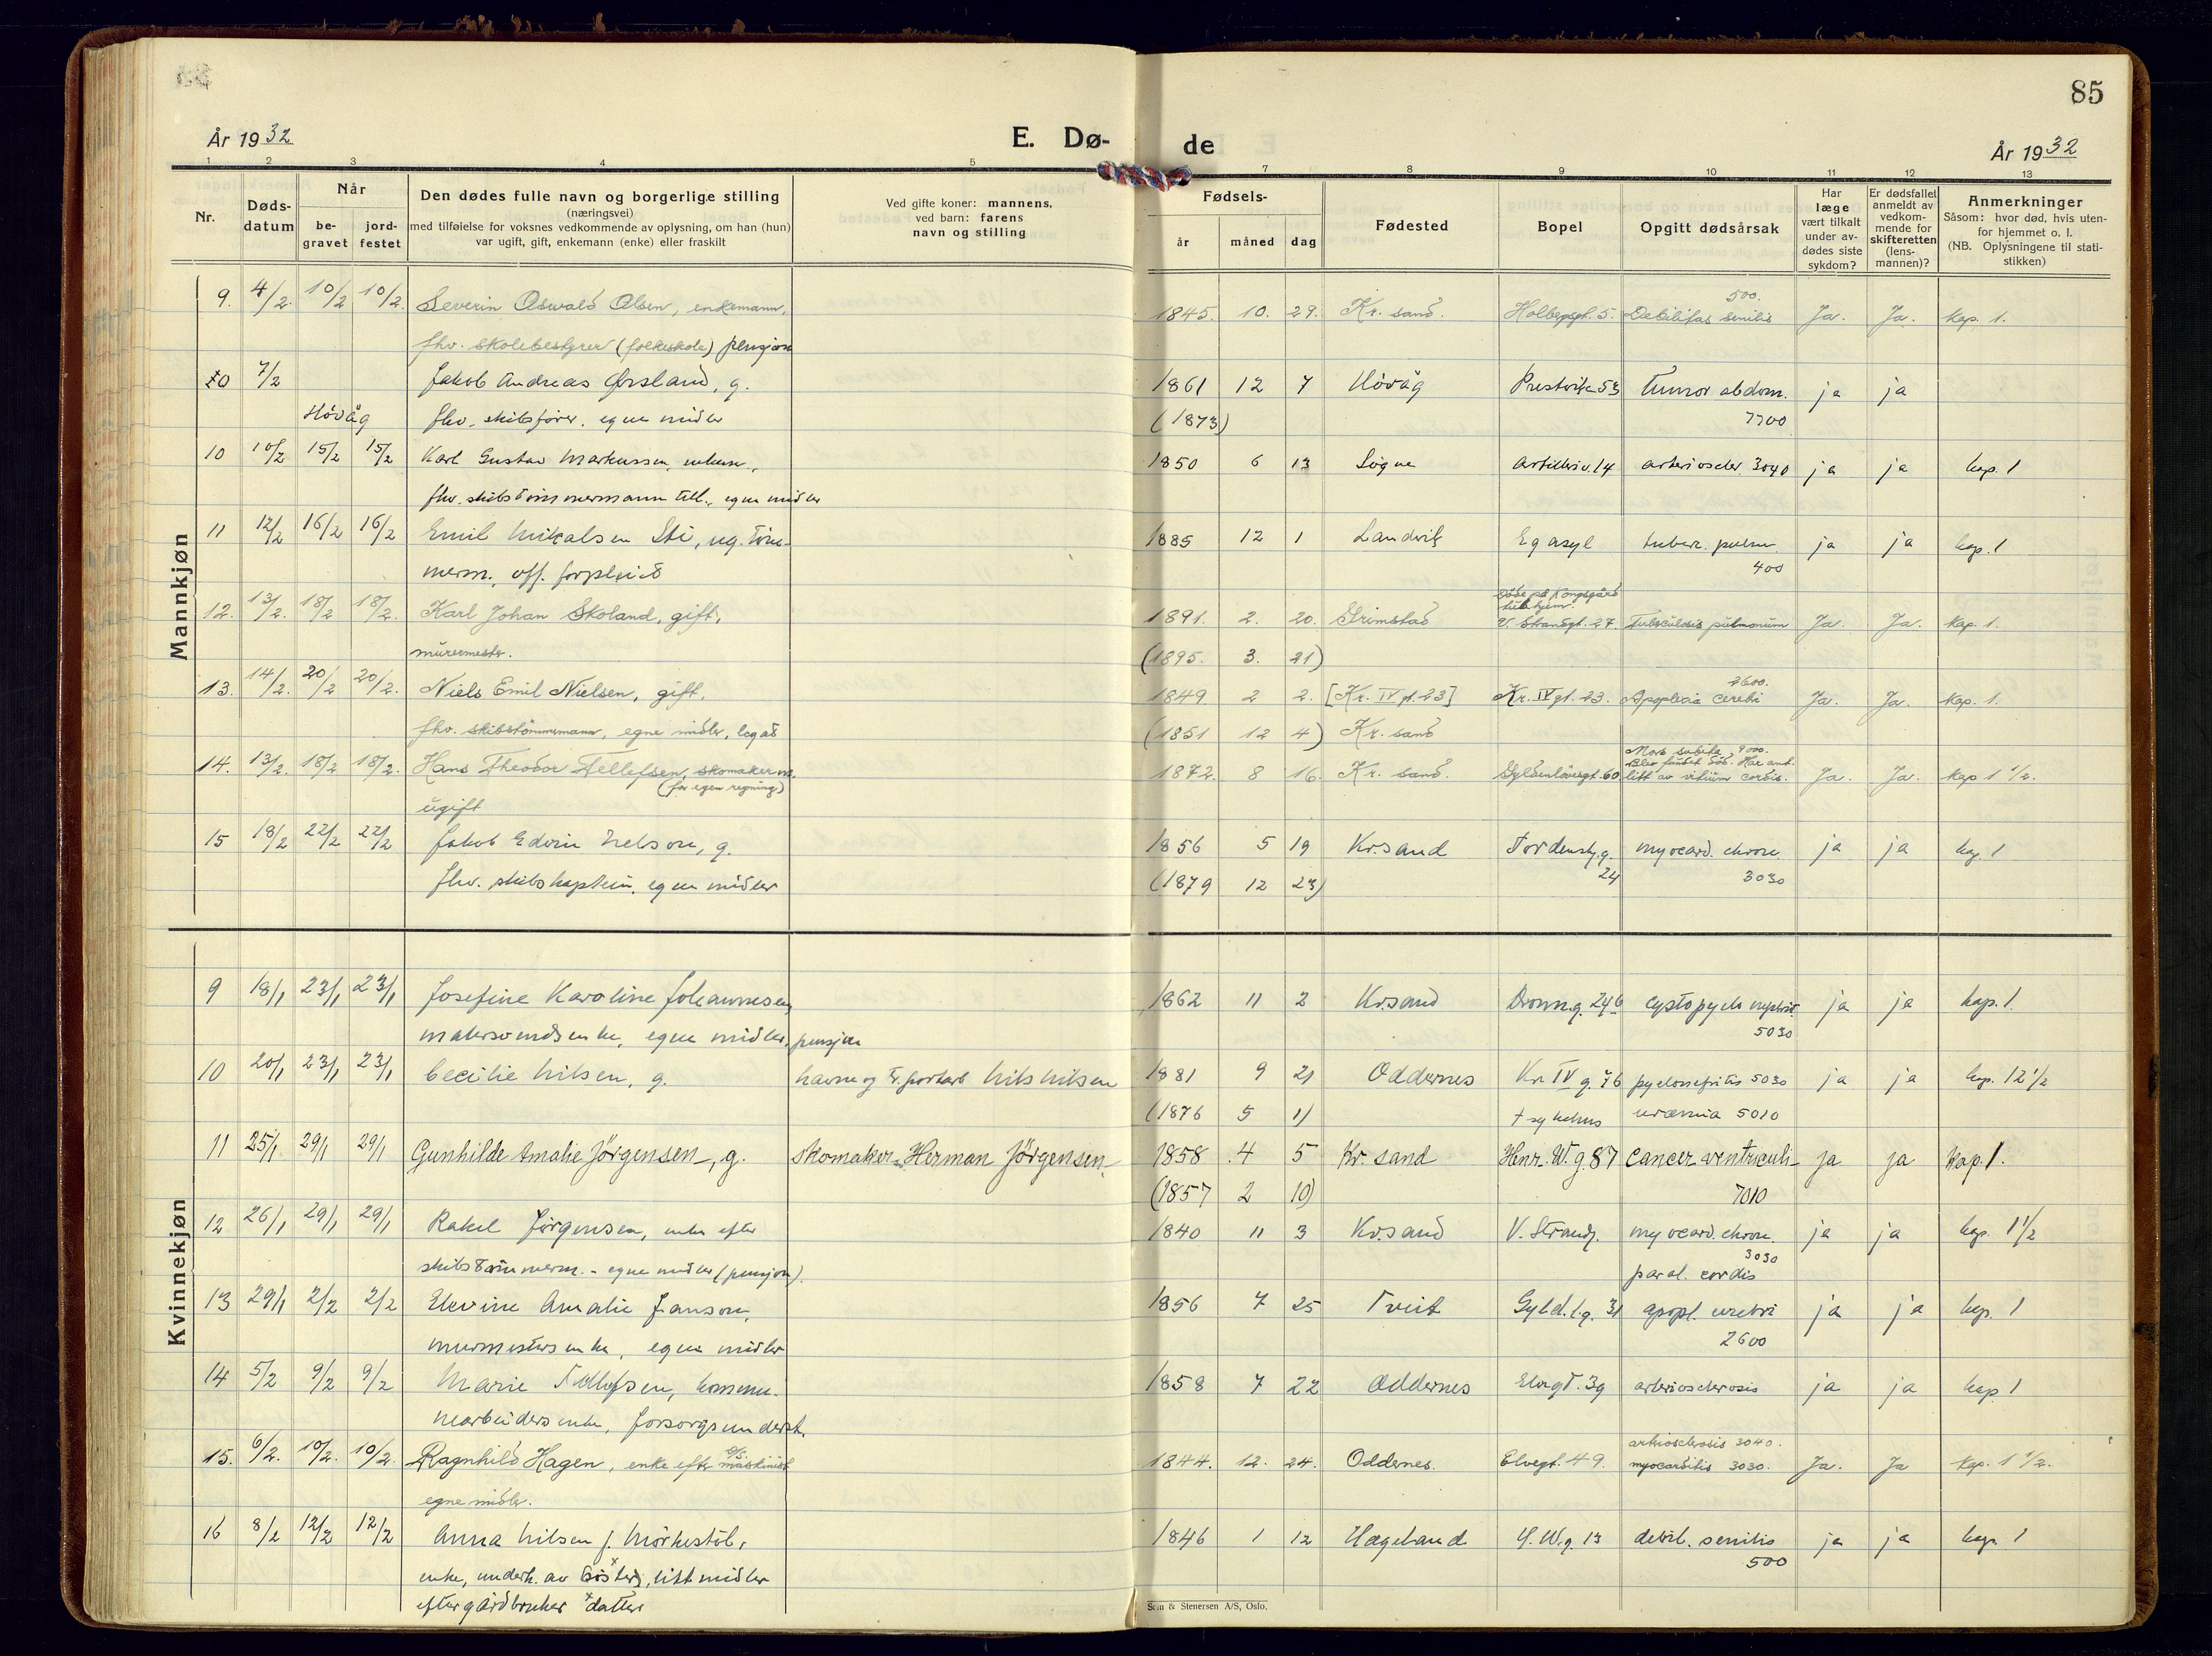 85
År 1932
E. Dø-
de
År 1932
1 2 3 4 5 7 8 9 10 11 12 13
Nr.
Døds-
datum
Når
be-
gravet
jord-
festet
Den dødes fulle navn og borgerlige stilling
(næringsvei)
med tilføielse for voksnes vedkommende av oplysning, om han (hun)
var ugift, gift, enkemann (enke) eller fraskilt
Ved gifte koner: mannens,
ved barn: farens
navn og stilling
Fødsels-
år måned dag
Fødested
Bopel
Opgitt dødsårsak
Har
læge
vært tilkalt
under av-
dødes siste
sykdom?
Er dødsfallet
anmeldt av
vedkom-
mende for
skifteretten
(lens-
mannen)?
Anmerkninger
Såsom: hvor død, hvis uten-
for hjemmet o. l.
(NB. Oplysningene til stati-
stikken)
Mannkjøn
500.
9. 4/2. 10/2 10/2. Severin Oswald Olsen, enkemann, 1845. 10. 29. Kr. sand. Holbergsgt. 5. Debilitas senilis Ja. Ja. Kap. 1.
fhv. skolebestyrer (folkeskole) pensjon
10 7/2 Jakob Andreas Ørsland, g. 1861 12 7 Høvåg Prestvika 53 Tumor abdom. ja ja
Høvåg fhv. skibsfører. egne midler (1873) 7700
10 10/2 15/2 15/2 Karl Gustav Markussen, enkem., 1850 6 13 Søgne Artilleriv. 14 arterioscler. 3040 ja ja kap. 1
fhv. skibstømmermann till., egne midler
11 12/2 16/2 16/2 Emil Mikalsen Sti, ug. tøm- 1885 12 1 Landvik Eg asyl tuberk. pulm. ja ja kap. 1
merm., off. forpleiet 400
Døde på Kongsgård
tub.hjem.
12. 13/2. 18/2 18/2. Karl Johan Skoland, gift, 1891. 2. 20. Grimstad V. Strandgt. 27. Tuberculosis pulmonum Ja. Ja. Kap. 1.
murermester. (1895. 3. 21)
2600.
13. 14/2. 20/2 20/2. Niels Emil Nielsen, gift, 1849. 2 2. [Kr. IV gt. 23] Kr. IV gt. 23. Apoplexia cerebri Ja. Ja. Kap. 1.
fhv. skibstømmermann, egne midler, legat (1851 12 4) Kr. sand
Mors subita, 9000.
Blev fundet død. Har ant.
14. 13/2. 18/2 18/2. Hans Theodor Tellefsen, skomakerm. 1872. 8 16. Kr. sand. Gyldenløvesgt. 60 litt av vitium cordis. Ja. Ja. Kap 1 1/2.
(for egen regning)
ugift
15 18/2 22/2 22/2 Jakob Edvin Nelson, g. 1856 5 19 Kr.sand Tordenskj.g. myocard. chron. ja ja kap. 1
fhv. skibskaptein, egne midler (1879 12 23) 24 3030
Kvinnekjøn
9 18/1 23/1 23/1 Josefine Karoline Johannesen, 1862 11 2 Kr.sand Dronn.g. 246 cystopyelo nephrit. ja ja kap. 1
malersvendsenke, egne midler, pensjon 5030
10 20/1 23/1 23/1 Cecilie Nilsen, g. havne og tr.portarb Nils Nilsen 1881 9 21 Oddernes Kr IV g. 76 pyelonefritis 5030 ja ja kap. 12 1/2
(1876 5 1) † sykehus uræmia 5010
11 25/1 29/1 29/1 Gunhilde Amalie Jörgensen, g. skomaker Herman Jörgensen 1858 4 5 Kr. sand Henr. W. g. 87 cancer ventriculi ja ja Kap. 1.
(1857 2 10) 7010
12 26/1 29/1 29/1 Rakel Jørgensen, enke efter 1840 11 3 Kr.sand V. Strandg. myocard. chron. ja ja kap. 1 1/2
skibstømmerm. - egne midler (pensjon). 3030
paral. cordis
13 29/1 2/2 2/2 Elevine Amalie Janson, 1856 7 25 Tveit Gyld.l.g. 31 apopl. cerebri ja ja kap. 1
murmestersenke, egne midler 2600
14 5/2 9/2 9/2 Marie Tellefsen, kommu- 1858 7 22 Oddernes Elvegt. 39 arteriosclerosis ja ja kap 1
nearbeidersenke, forsorgsunderst.
arteriosclerosis 3040.
15. 6/2. 10/2. 10/2. Ragnhild Hagen, enke efter maskinist 1844. 12. 24. Oddernes. Elvegt. 49. myocarditis 3030. Ja. Ja Kap. 1 1/2.
egne midler.
16 8/2 12/2 12/2 Anna Nilsen f. Mørkestøl, 1846 1 12 Hægeland H. W. g. 13 debil. senilis ja ja kap. 1
enke, underh. av søster, litt midler 500
efter gårdbruker datter
Sem & Stenersen A/S, Oslo.